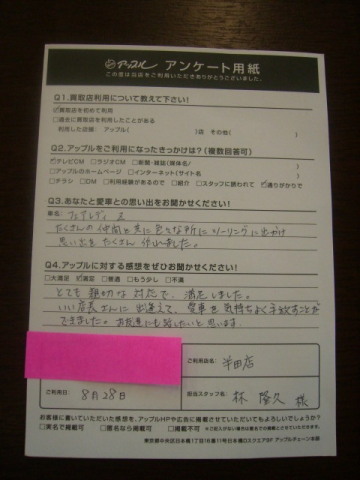 アップル アンケート用紙
この度は当店をご利用いただきありがとうございました。
Q1.買取店利用について教えて下さい!
☑買取店を初めて利用
□過去に買取店を利用したことがある
利用した店舗: アップル( )店 その他( )
Q2.アップルをご利用になったきっかけは?(複数回答可)
☑テレビCM □ラジオCM □新聞・雑誌(媒体名/ )
□アップルのホームページ □インターネット(サイト名 )
□チラシ □DM □利用経験があるので □紹介 □スタッフに誘われて ☑通りがかりで
Q3.あなたと愛車との思い出をお聞かせください!
車名: フェアレディ Z
たくさんの仲間と共に色々な所にツーリングに出かけ
思い出をたくさん作りました。
Q4.アップルに対する感想をぜひお聞かせください!
□大満足 ☑満足 □普通 □もう少し □不満
とても親切な対応で、満足しました。
いい店長さんに出逢えて、愛車を気持ちよく手放すことが
できました。お友達にも話したいと思います。
ご利用店名: 半田店
ご利用日: 8月28日
担当スタッフ名: 林 隆久 様
お客様に書いていただいた感想を、アップルHPや広告に掲載させていただいてもよろしいでしょうか?
□実名で掲載可 □匿名なら掲載可 □掲載不可
東京都中央区日本橋1丁目16番11号日本橋Dスクエア8F アップルチェーン本部